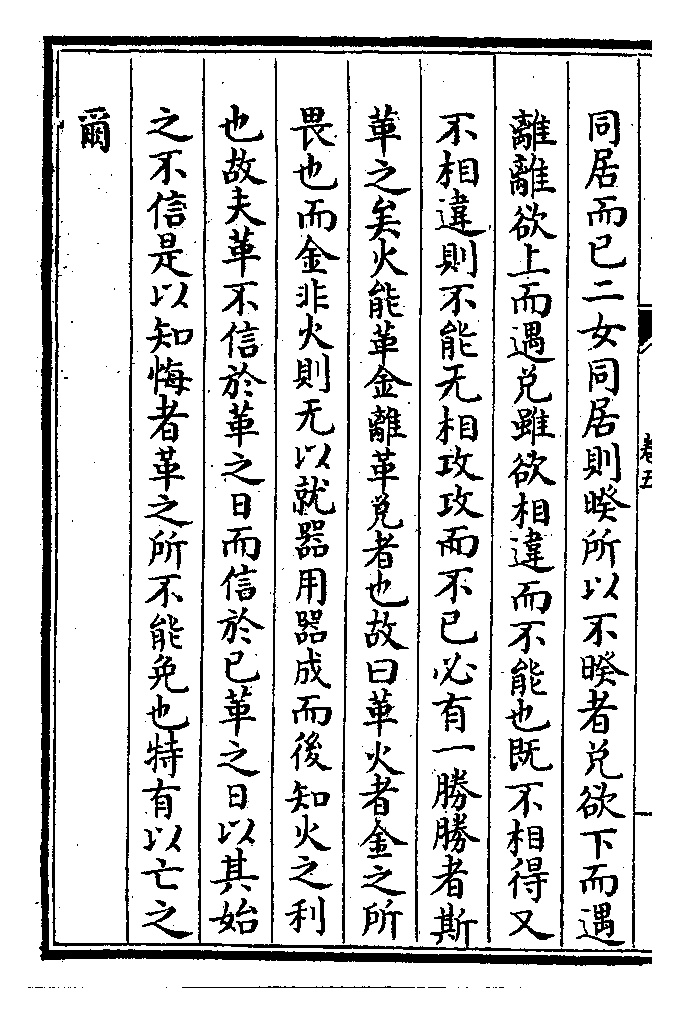 卷五
同居而已二女同居則暌所以不暌者兑欲下而遇
離離欲上而遇兑雖欲相違而不能也既不相得又
不相違則不能无相攻攻而不已必有一勝勝者斯
革之矣火能革金離革兑者也故曰革火者金之所
畏也而金非火則无以就器用器成而後知火之利
也故夫革不信於革之日而信於已革之日以其始
之不信是以知悔者革之所不能免也特有以亡之
爾